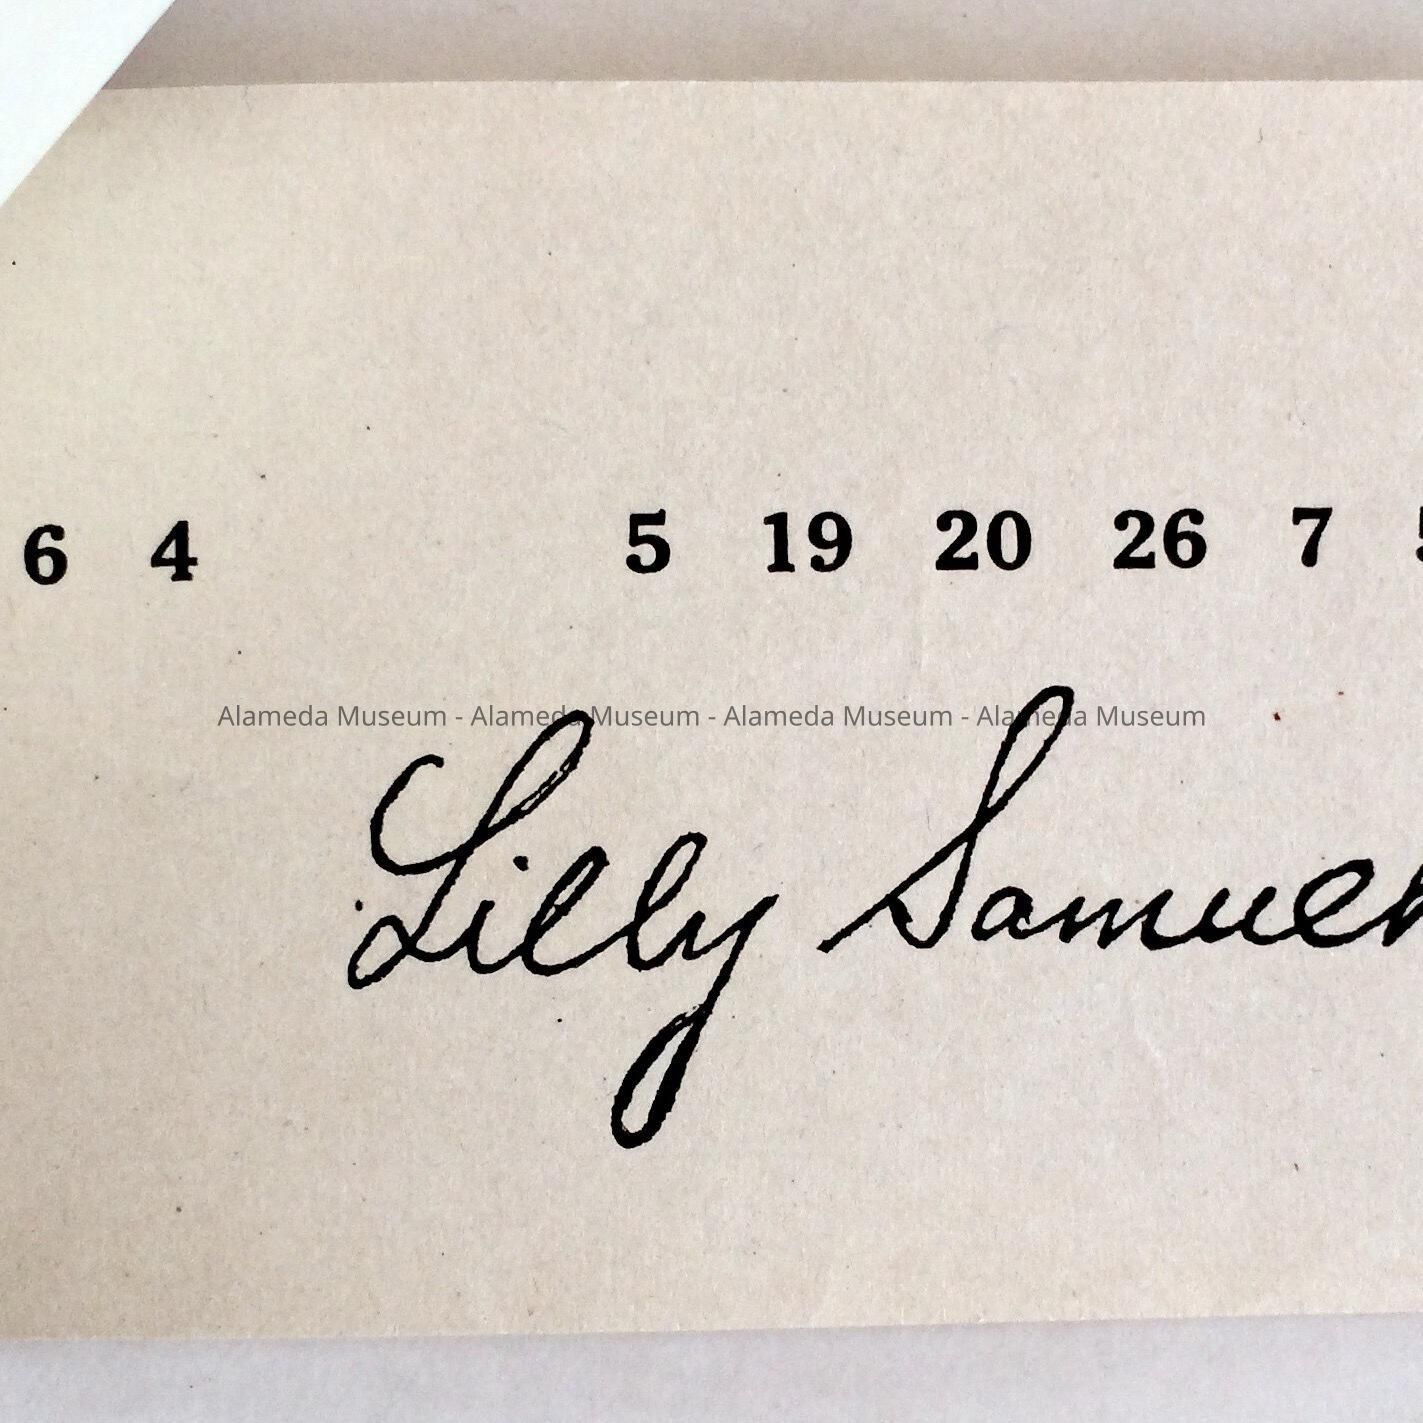 6 4 5 19 20 26 7
Alameda Museum - Alameda Museum - Alameda Museum - Alameda Museum
Lilly